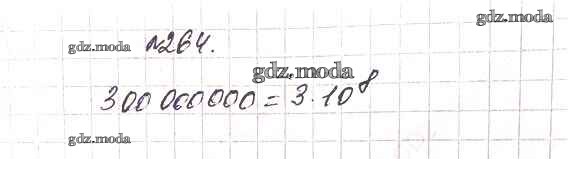 gdz.moda
gdz.moda №264.
gdz.moda
300 000000 = 3 · 10⁸
gdz.moda